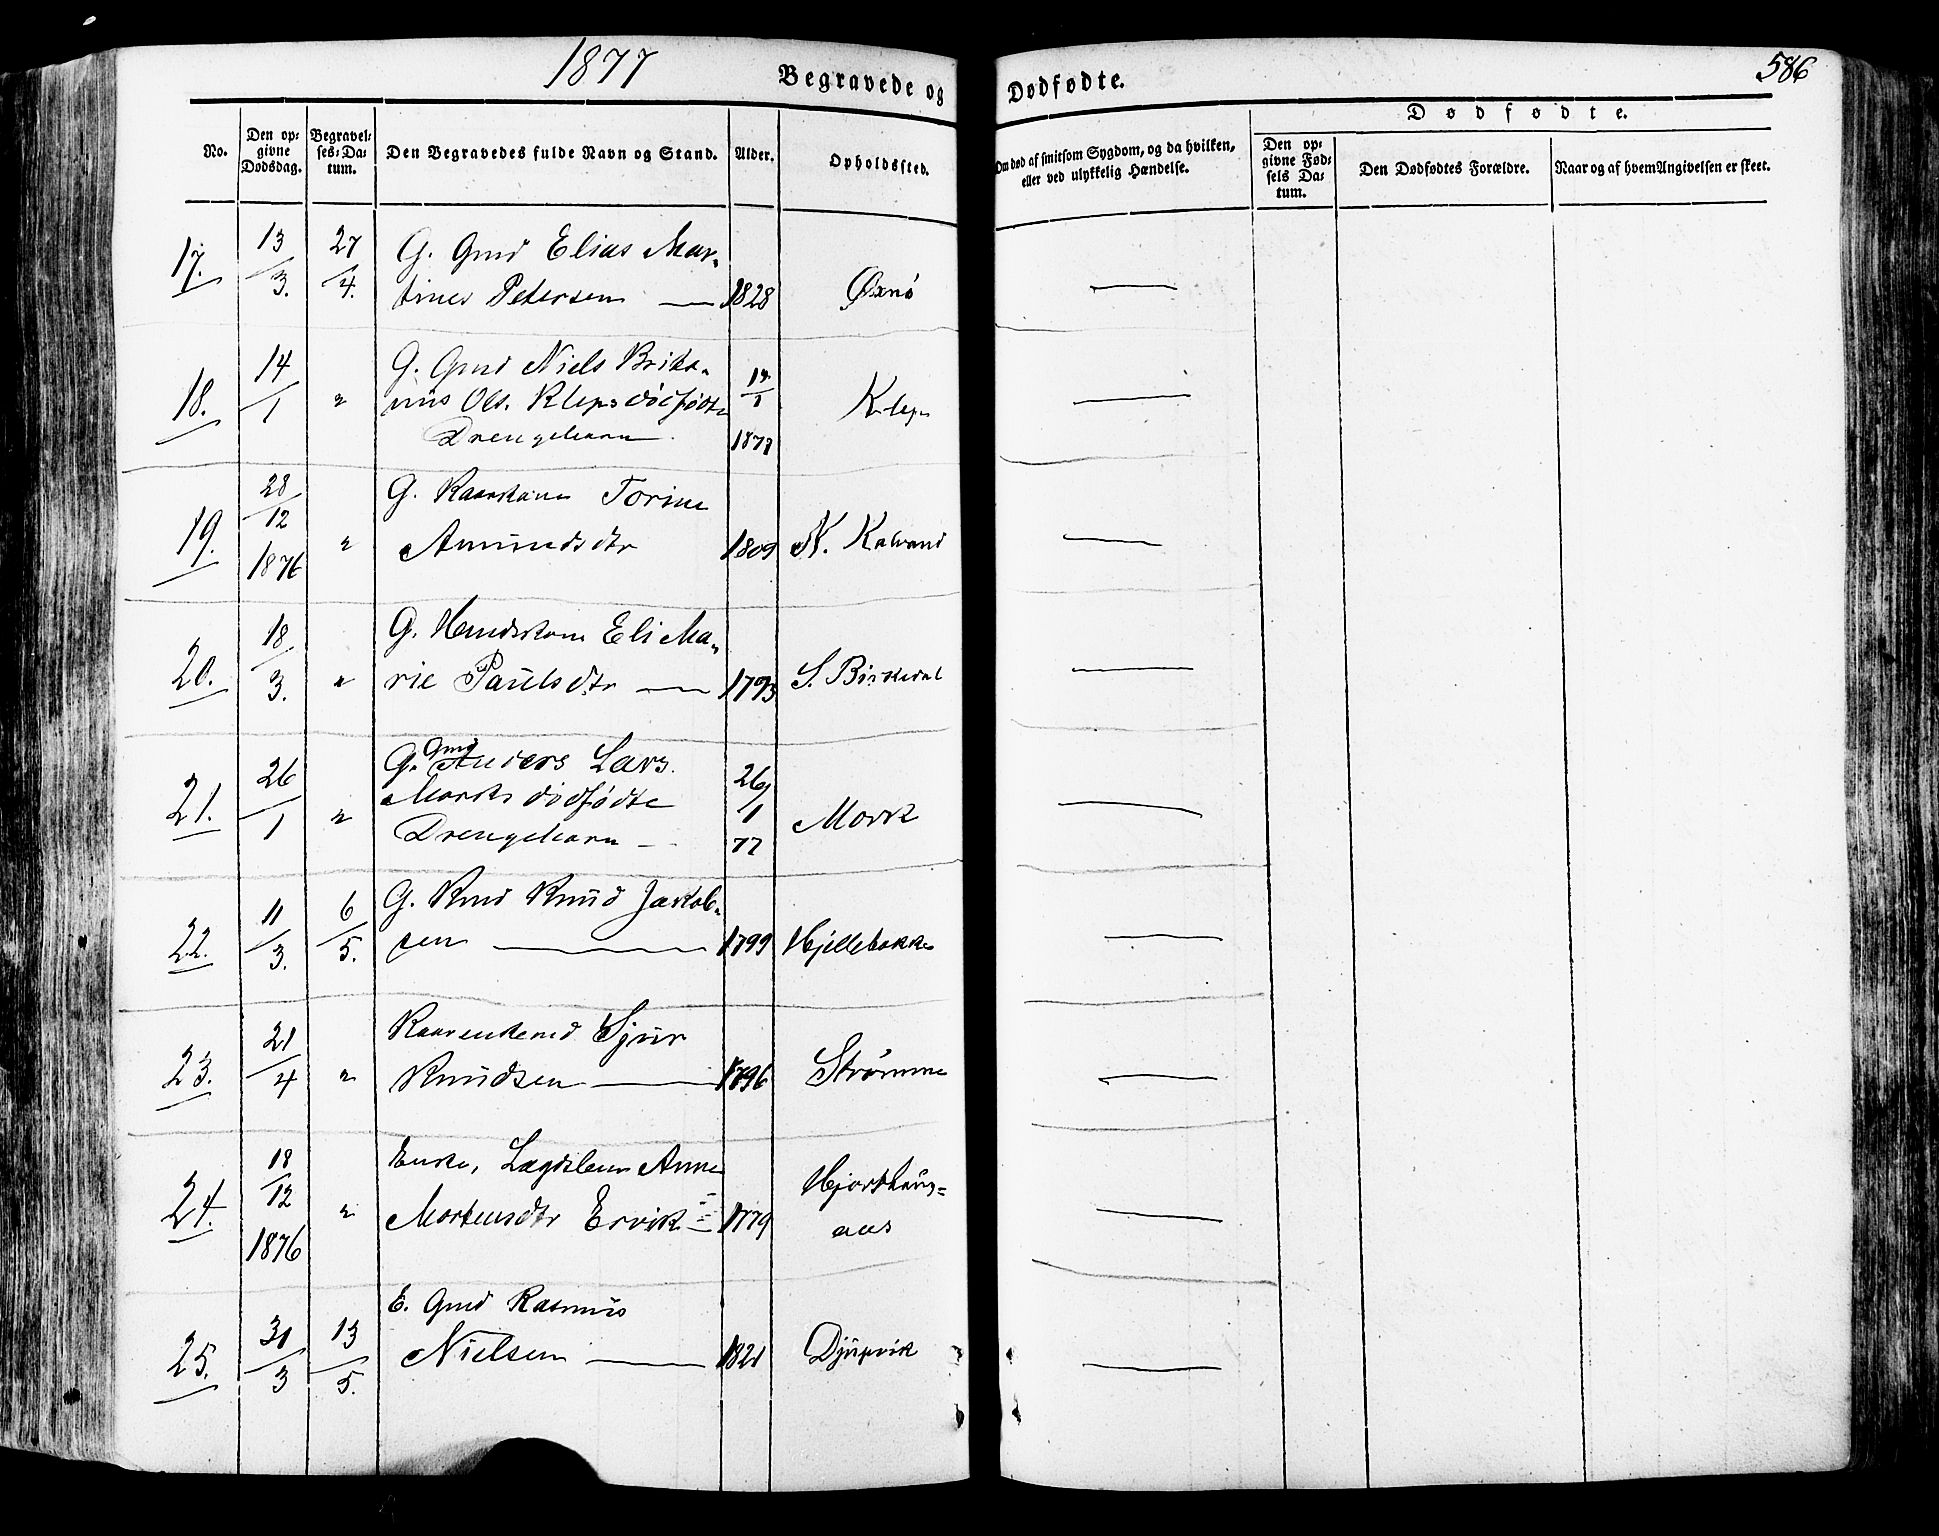 1877
Begravede og Dødfødte.
586
No.
Den opgivne Dødsdag.
Begravelses-Datum.
Den Begravedes fulde Navn og Stand.
Alder.
Opholdssted.
Om død af smitsom Sygdom, og da hvilken, eller ved ulykkelig Hændelse.
Dødfødte.
Den opgivne Fødsels Datum.
Den Dødfødtes Forældre.
Naar og af hvem Angivelsen er skeet.
17. 13/3. 27/4. G. Gmd Elias Mar-
tines Petersen — 1828 Øxnø —
18. 14/1 " G. Gmd Niels Briks-
nus Ols. Kleps dødfødte 14/1 Klep —
Drengebarn. 1877
19. 28/12 1876 " G. Kaarkone Torine
Amundsdtr 1809 N. Kalvand —
20. 18/3. " G. Huuskone Eli Ma-
rie Paulsdtr — 1793 S. Birkedal —
21. 26/1 " G. Gmd Anders Lars.
Morks dødfødte 26/1 Mork —
Drengebarn — 77
22. 11/3. 6/5. G. Kmd Knud Jakob-
sen — 1799 Hjellebakke —
23. 21/4 " Kaarenkemd Sjur
Knudsen — 1796 Strømme —
24. 18/12 1876 " Enke, Lægdslem Anne
Mortensdtr Ervik — 1779 Hjorthaug-
aas —
25. 31/3 13/5. E. Gmd Rasmus
Nielsen — 1821 Djupvik —